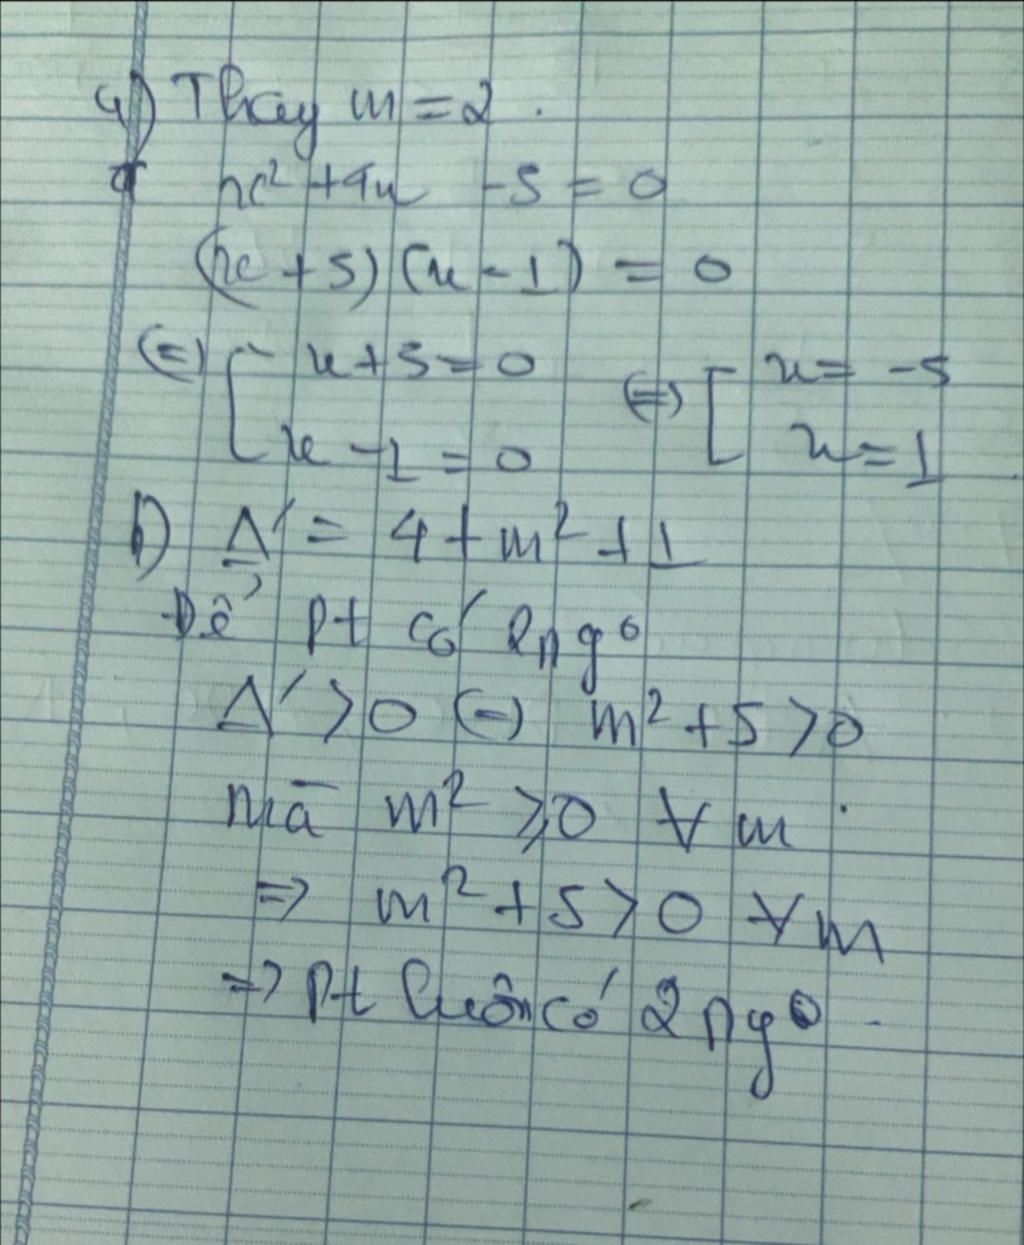 a) Thay m = 2.
x² + 4x - 5 = 0
(x + 5) (x - 1) = 0
(=) [ x + 5 = 0 (=) [ x = -5
x - 1 = 0 x = 1
b) Δ' = 4 + m² + 1
Để pt có 2 ng⁰
Δ' > 0 (=) m² + 5 > 0
mà m² ⩾ 0 ∀ m
=> m² + 5 > 0 ∀ m
=> pt luôn có 2 ng⁰